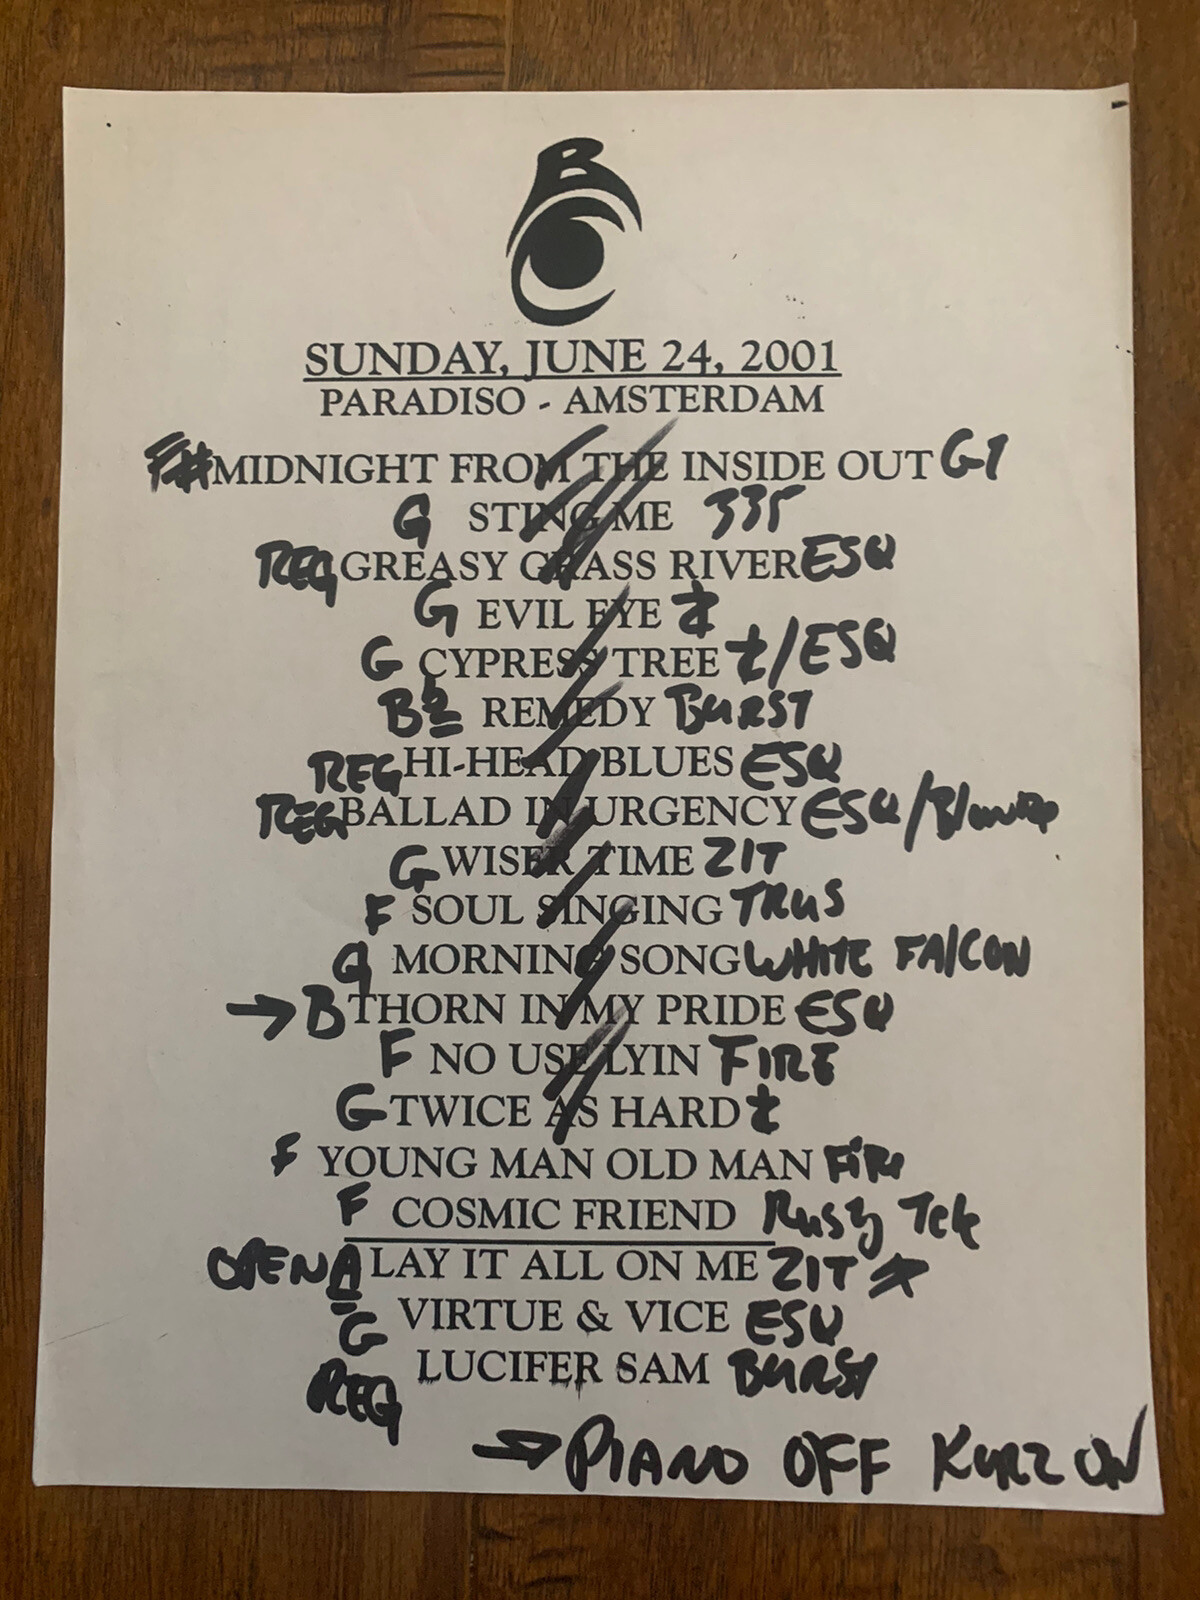 BC
SUNDAY, JUNE 24, 2001
PARADISO - AMSTERDAM
F# MIDNIGHT FROM THE INSIDE OUT
G STING ME 335
REG GREASY GRASS RIVER ESQ
G EVIL EYE Z
G CYPRESS TREE Z/ESQ
Bb REMEDY BURST
REG HI-HEAD BLUES ESQ
REG BALLAD IN URGENCY ESQ/
G WISER TIME ZIT
F SOUL SINGING TRUS
G MORNING SONG WHITE FALCON
→ B THORN IN MY PRIDE ESQ
F NO USE LYIN FIRE
G TWICE AS HARD Z
F YOUNG MAN OLD MAN FIRE
F COSMIC FRIEND Tele
OPEN A LAY IT ALL ON ME ZIT ★
G VIRTUE & VICE ESQ
REG LUCIFER SAM BURST
→ PIANO OFF KURZ ON